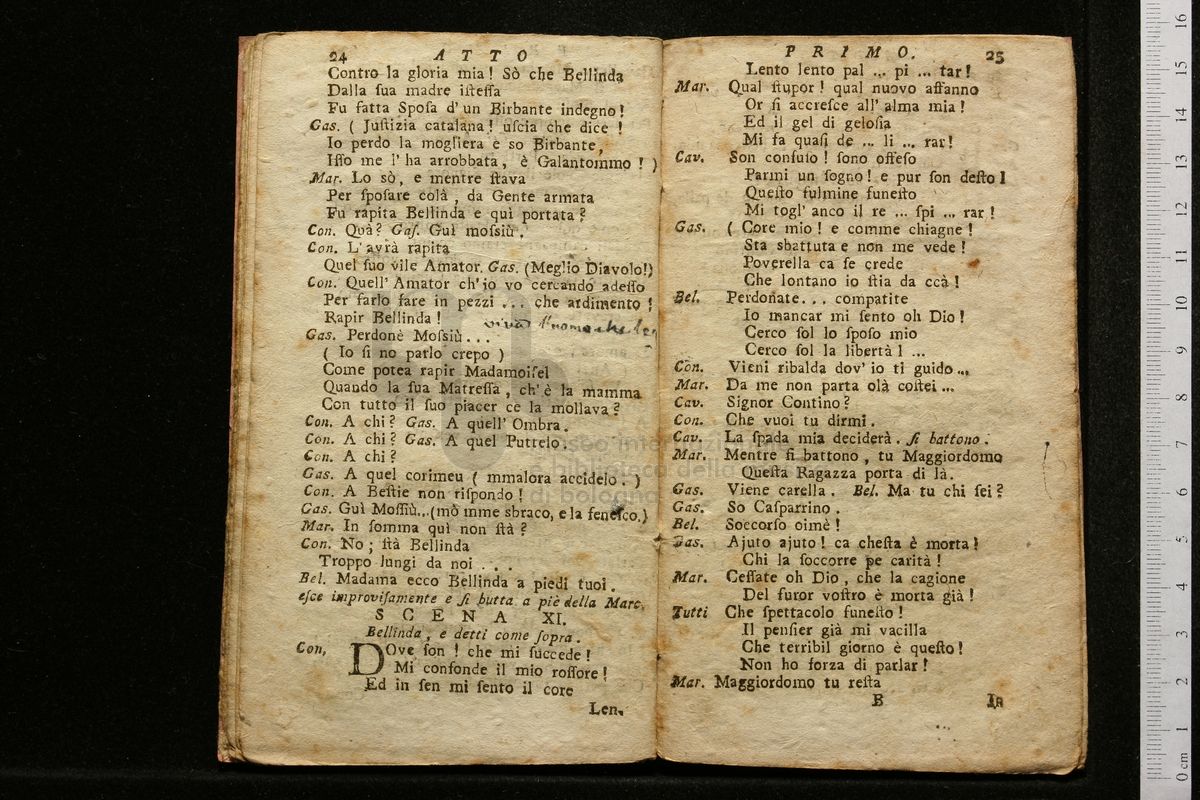 24 ATTO
Contro la gloria mia! Sò che Bellinda
Dalla ſua madre iſteſſa
Fu fatta Spoſa d'un Birbante indegno!
Gas. ( Juſtizia catalana! uſcia che dice!
Io perdo la mogliera e so Birbante,
Iſſo me l'ha arrobbata, è Galantommo! )
Mar. Lo sò, e mentre ſtava
Per ſpoſare colà, da Gente armata
Fu rapita Bellinda e quì portata?
Con. Quà? Gaſ. Guì moſsiù.
Con. L'avrà rapita
Quel ſuo vile Amator. Gas. (Meglio Diavolo!)
Con. Quell' Amator ch'io vo cercando adeſſo
Per farlo fare in pezzi ... che ardimento!
Rapir Bellinda!
Gas. Perdonè Moſsiù...
( Io ſi no parlo crepo )
Come potea rapir Madamoiſel
Quando la ſua Matreſſa, ch'è la mamma
Con tutto il ſuo piacer ce la mollava?
Con. A chi? Gas. A quell' Ombra.
Con. A chi? Gas. A quel Puttelo.
Con. A chi?
Gas. A quel corimeu ( mmalora accidelo. )
Con. A Beſtie non riſpondo!
Gas. Guì Moſſiù...(mò mme sbraco, e la feneſco.)
Mar. In ſomma quì non ſtà?
Con. No; ſtà Bellinda
Troppo lungi da noi ...
Bel. Madama ecco Bellinda a piedi tuoi.
eſce improviſamente e ſi butta a piè della Marc.
SCENA XI.
Bellinda, e detti come ſopra.
Con. DOve ſon! che mi ſuccede!
Mi confonde il mio roſſore!
Ed in ſen mi ſento il core
Len.
PRIMO. 25
Lento lento pal ... pi ... tar!
Mar. Qual ſtupor! qual nuovo affanno
Or ſi accreſce all' alma mia!
Ed il gel di geloſia
Mi fa quaſi de ... li ... rar!
Cav. Son confuſo! ſono offeſo
Parmi un ſogno! e pur ſon deſto!
Queſto fulmine funeſto
Mi togl' anco il re ... ſpi ... rar!
Gas. ( Core mio! e comme chiagne!
Sta sbattuta e non me vede!
Poverella ca ſe crede
Che lontano io ſtia da ccà!
Bel. Perdonate... compatite
Io mancar mi ſento oh Dio!
Cerco ſol lo ſpoſo mio
Cerco ſol la libertà! ...
Con. Vieni ribalda dov' io ti guido...
Mar. Da me non parta olà coſtei...
Cav. Signor Contino?
Con. Che vuoi tu dirmi.
Cav. La ſpada mia deciderà. ſi battono.
Mar. Mentre ſi battono, tu Maggiordomo
Queſta Ragazza porta di là.
Gas. Viene carella. Bel. Ma tu chi ſei?
Gas. So Caſparrino.
Bel. Soccorſo oimè!
Gas. Ajuto ajuto! ca cheſta è morta!
Chi la ſoccorre pe carità!
Mar. Ceſſate oh Dio, che la cagione
Del furor voſtro è morta già!
Tutti Che ſpettacolo funeſto!
Il penſier già mi vacilla
Che terribil giorno è queſto!
Non ho forza di parlar!
Mar. Maggiordomo tu reſta
B In
museo internazionale
e biblioteca della
di bologna
0 cm 1 2 3 4 5 6 7 8 9 10 11 12 13 14 15 16